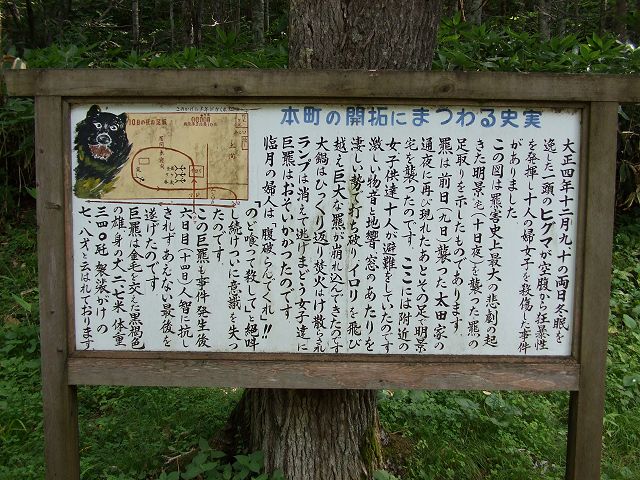 本町の開拓にまつわる史実
大正四年十二月九・十の両日冬眠を
逸した一頭のヒグマが空腹から狂暴性
を発揮し十人の婦女子を殺傷した事件
がありました
この図は羆害史上最大の悲劇の起
きた明景宅(十日夜)を襲った羆の
足取りを示したものであります。
羆は前日(九日)襲った太田家の
通夜に再び現れたあとその足で明景
宅を襲ったのです ここには附近の
女子供達十人が避難をしていたのです
激しい物音と地響、窓のあたりを
凄しい勢で打ち破りイロリを飛び
越え巨大な羆が崩れ込んできたのです
大鍋はひっくり返り焚火はけ散らされ
ランプは消えて逃げまどう女子達に
巨羆はおそいかかったのです
臨月の婦人は「腹破らんでくれ」!!
「のど喰って殺して」と絶叫
し続けついに意識を失っ
たのです
この巨羆も事件発生後
六日目(十四日)人智に抗し
きれずあえない最後を
遂げたのです
巨羆は金毛を交えた黒褐色
の雄身の丈二、七米 体重
三四〇瓩 袈裟がけの
七・八才と云はれております
10日の夜の足跡